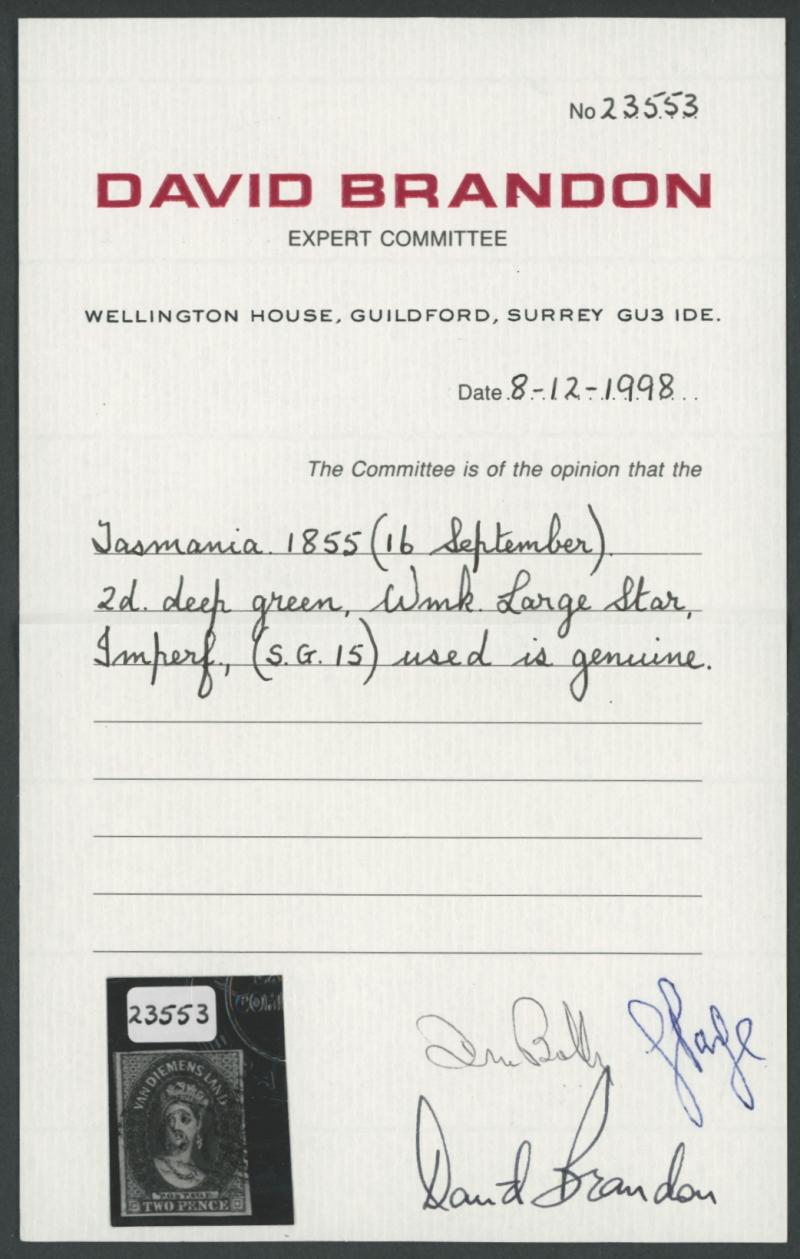 No 23553
DAVID BRANDON
EXPERT COMMITTEE
WELLINGTON HOUSE, GUILDFORD, SURREY GU3 1DE.
Date 8-12-1998
The Committee is of the opinion that the
Tasmania. 1855 (16 September).
2d. deep green, Wmk. Large Star,
Imperf., (S.G. 15) used is genuine.
23553
VAN DIEMENS LAND
POSTAGE
TWO PENCE
David Brandon